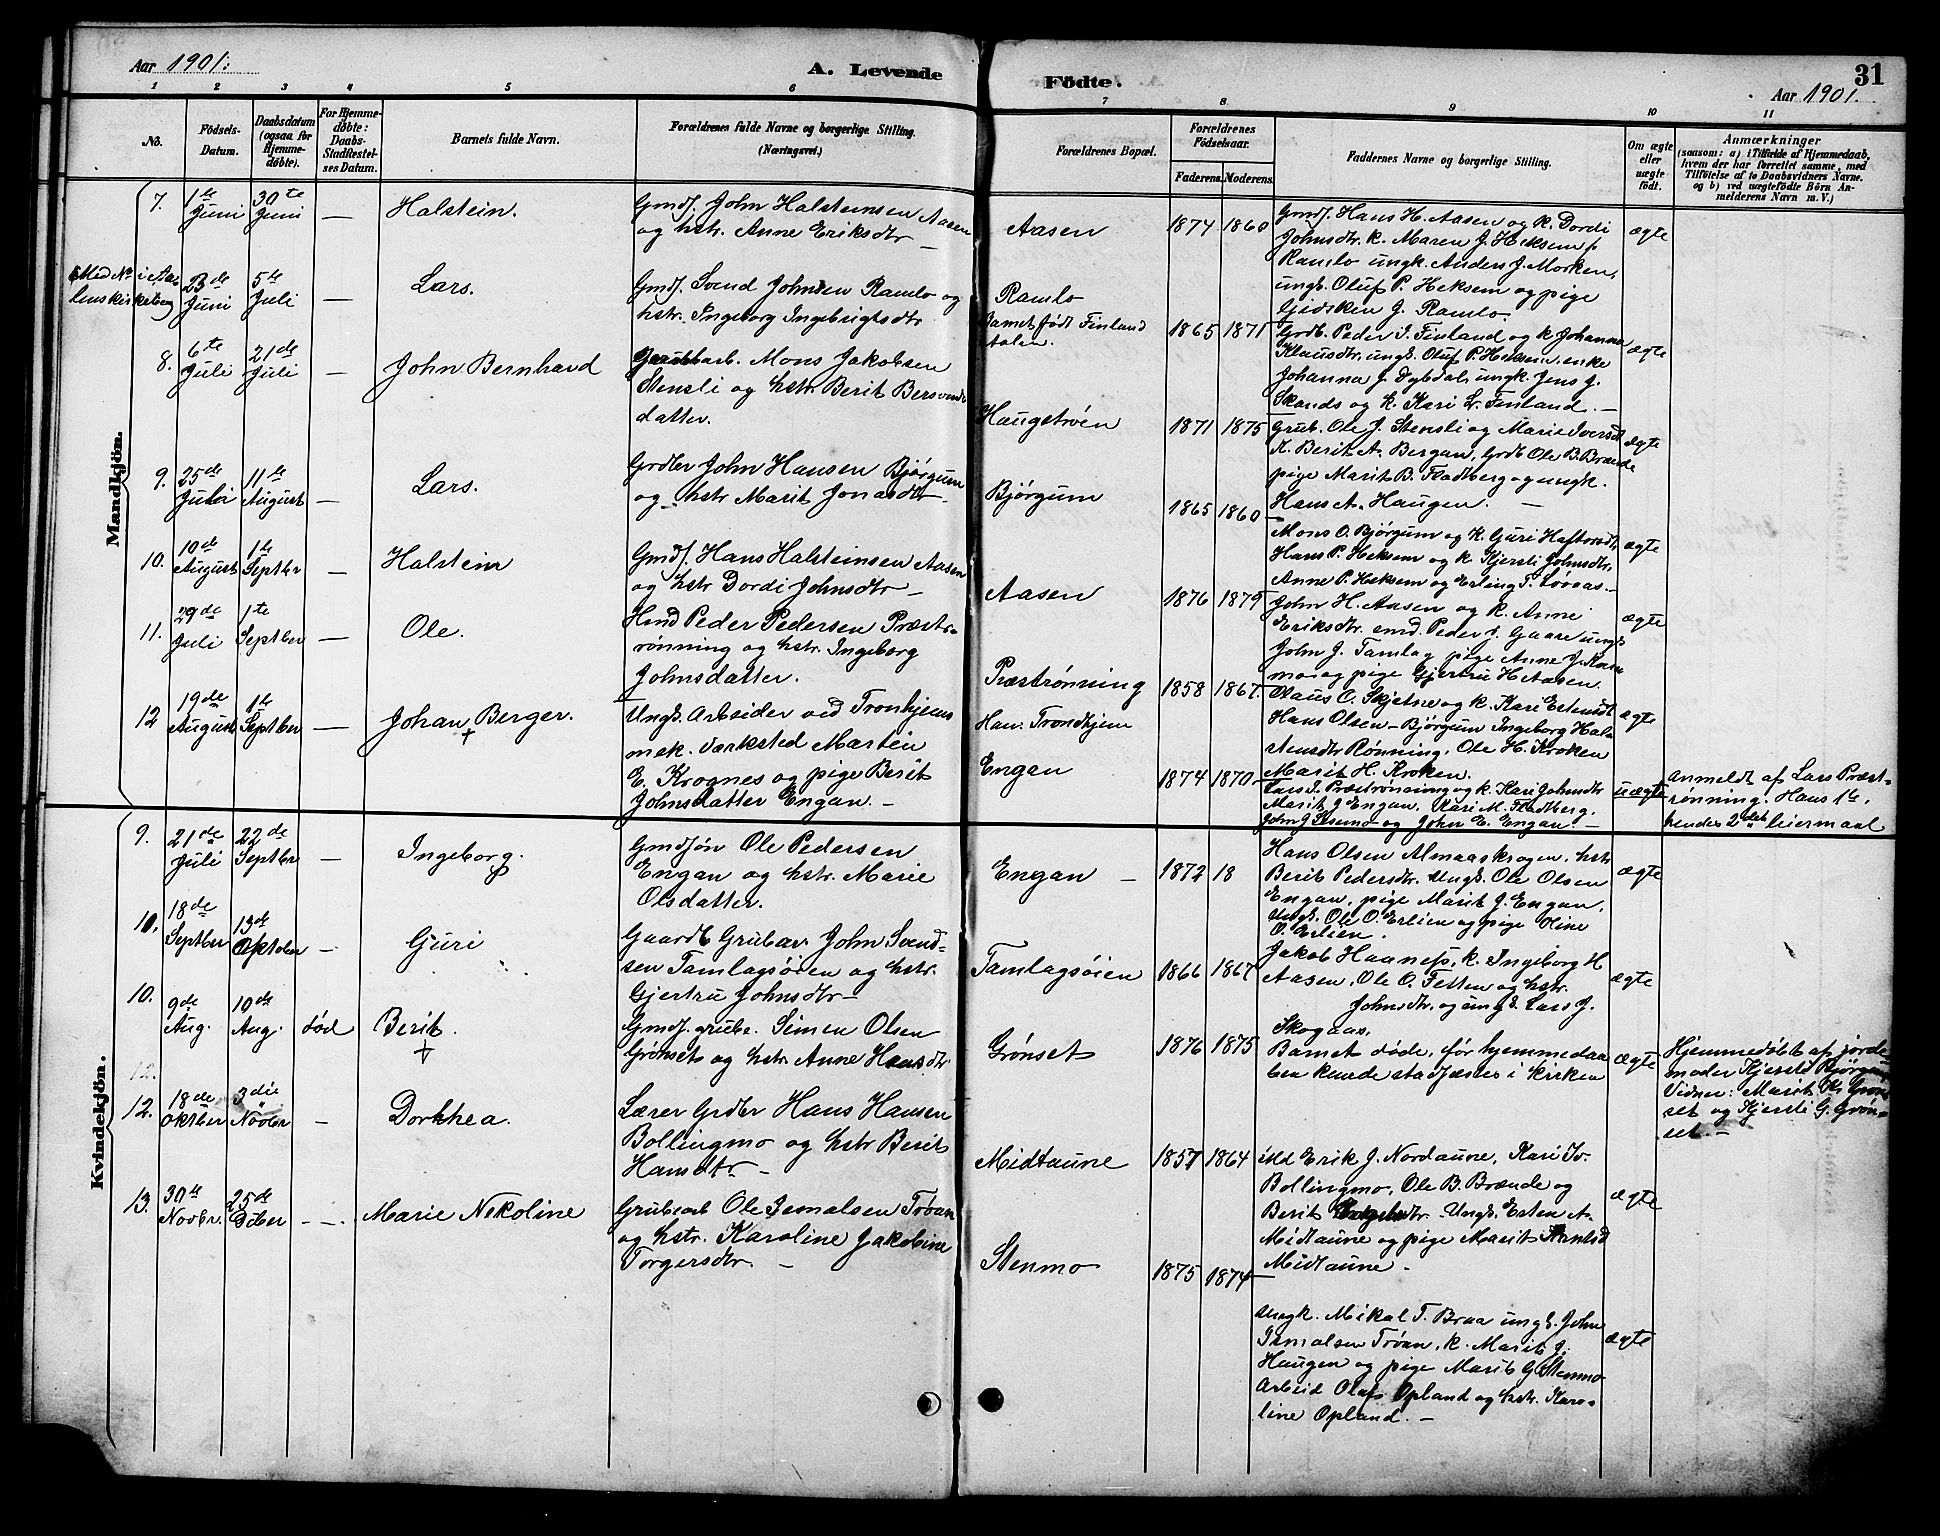 Aar 1901.
A. Levende
1 2 3 4 5 6
No.
Födsels-
Datum.
Daabsdatum
(ogsaa for
Hjemme-
døbte).
For Hjemme-
døbte:
Daabs-
Stadfæstel-
ses Datum.
Barnets fulde Navn.
Forældrenes fulde Navne og borgerlige Stilling.
(Næringsvei.)
Mandkjön.
7. 1ste Juni 30te Juni — Halstein.
Gmdf. John Halsteinsen Aasen
og hstr. Anne Eriksdtr —
23de Juni 5te Juli — Lars.
Gmdf. Svend Johnsen Ramlo og
hstr. Ingeborg Ingebrigtsdtr
8. 6te Juli 21de Juli — John Bernhard
Mons Jakobsen
Stensli og hstr Berit Bersvends
datter.
9. 25de Juli 11te August — Lars.
Grdbr John Hansen Bjørgum
og hstr Marit Jonasdtr —
10. 10de August 1ste Septbr — Halstein
Gmdf. Hans Halsteinsen Aasen
og hstr Dordi Johnsdtr —
11. 29de Juli 1te Septbr — Ole.
Hmd Peder Pedersen Præst-
rønning og hstr. Ingeborg
Johnsdatter.
12 19de August 1ste Septbr — Johan Berger.
†
Ungk. Arbeider ved Tronhjems
mek. Værksted Martin
E. Krognes og pige Berit
Johnsdatter Engan. —
Kvindekjön.
9. 21de Juli 22de Septbr — Ingeborg.
Gmdsøn Ole Pedersen
Engan og hstr. Marie
Olsdatter.
10. 18de Septbr 13de Oktober — Guri
Gaardb Grubar. John Svend-
sen Tamlagsøien og hstr.
Gjertru Johnsdtr —
10. 9de Aug. 10de Aug. død Berit.
†
Gmdf. grube. Simen Olsen
Grønset og hstr. Anne Hansdtr
12.
12. 18de Oktber 3die Novbr — Dorthea.
Lærer Grdbr Hans Hansen
Bollingmo og hstr Berit
Hansdtr —
13. 30te Novbr. 25de Dcber — Marie Nikoline
Grubearb Ole Ismalsen Trøan
og hstr. Karoline Jakobine
Torgersdtr. —
Födte.
31
Aar 1901.
7 8 9 10 11
Forældrenes Bopæl.
Forældrenes
Födselsaar.
Faderens. Moderens.
Faddernes Navne og borgerlige Stilling.
Om ægte
eller
uægte
födt.
Anmærkninger
(saasom: a) i Tilfælde af Hjemmedaab,
hvem der har forrettet samme, med
Tilföielse af to Daabsvidners Navne.
og b) ved uægtefödte Börn An-
melderens Navn m. V.)
Aasen 1874 1860 ægte
Gmdf. Hans H. Aasen og k. Dordi
Johnsdtr. k. Maren J. Heksem f.
Ramlo ungk. Anders J. Morken,
ungk. Oluf P. Heksem og pige
Gjidsken J. Ramlo.
Ramlo
Barnet født Finland
Aalen.
1865 1871 ægte
Grdb. Peder J. Finland og k Johanna
Klausdtr. ungk. Oluf P. Heksem, enke
Johanna J. Dybdal, ungk. Jens J.
Skands og k. Kari L. Finland. —
Haugstrøen 1871 1875 ægte
Grub. Ole J. Stensli og Marit Iversdt
k. Berit A. Bergan, Grdb Ole B. Brænde
pige Marit B. Fladberg og ungk.
Hans A. Haugen. —
Bjørgum 1865 1860 ægte
Mons O. Bjørgum og k. Guri Haftorsdtr
Hans P. Heksem og k Kjersti Johnsdtr.
Anne P. Heksem og Erling T. Løvaas. —
Aasen 1876 1879 ægte
John H. Aasen og k. Anne
Eriksdtr. smd. Peder J. Gaare ungk
John J. Tamlag pige Anne J. Kam
mo og pige Gjertru H. Aasen.
Præstrønning 1858 1867 ægte
Olaus O. Skjetne og k. Kari Estensdt
Hans Olsen — Bjørgum Ingeborg Hal-
stensdtr Rønning, Ole H. Kroken
Marit H. Kroken.
Han: Trondhjem
Engan
1874 1870 uægte
Lars I. Præstrønning og k. Kari Johnsdtr
Marit J. Engan, Kari M. Fladberg,
John J. Stenmo og John E. Engan. —
anmeldt af Lars Præst-
rønning. Hans 1ste,
hendes 2det leiermaal
Engan — 1872 18 ægte
Hans Olsen Almaaskrogen, hstr
Berit Pedersdtr. Ungk. Ole Olsen
Engan, pige Marit J. Engan,
Ungk. Ole O. Erlien og pige Oline
O. Erlien.
Tamlagsøien 1866 1867 ægte
Jakob Haanes, k. Ingeborg H
Aasen, Ole O. Fetten og hstr.
Johnsdtr, og ungk. Lars J.
Skogaas.
Grønset 1876 1875 ægte
Barnet døde, før hjemmedaa
ben kunde stadfæstes i kirken
Hjemmedøbt af jorde-
moder Kjersti Bjørgum
Vidner: Marit Grøn
set og Kjersti G. Grøn-
set. —
Midtaune 1857 1864 ægte
Erik J. Nordaune, Kari Iv.
Bollingmo, Ole B. Brænde og
Berit Ungk. Esten A.
Midtaune og pige Marit Arntsd
Midtaune.
Stenmo 1875 1874 ægte
Ungk. Mikal T. Braa ungk. John
Ismalsen Trøan, k. Marit J.
Haugen og pige Marit G. Stenmo
Arbeid Olaf Opland og hstr. Karo-
line Opland. —